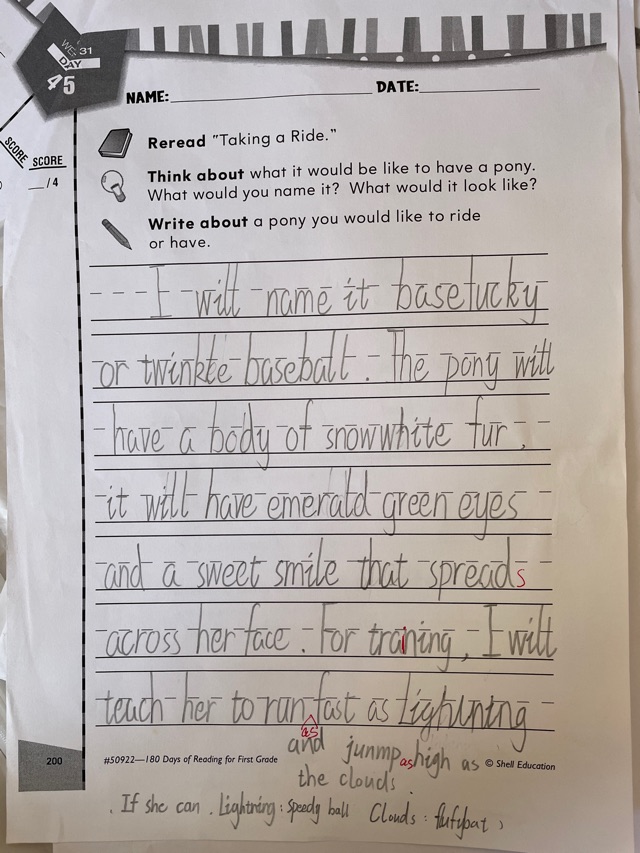 WEEK 31
DAY
45
SCORE
SCORE
__/4
NAME:
DATE:
Reread "Taking a Ride."
Think about what it would be like to have a pony.
What would you name it? What would it look like?
Write about a pony you would like to ride
or have.
I will name it baselucky
or twinkle baseball. The pony will
have a body of snowwhite fur,
it will have emerald green eyes
and a sweet smile that spreads
across her face. For training, I will
teach her to run as fast as lightning
and junmp as high as
the clouds.
200
#50922—180 Days of Reading for First Grade
© Shell Education
If she can. Lightning: Speedy ball Clouds: